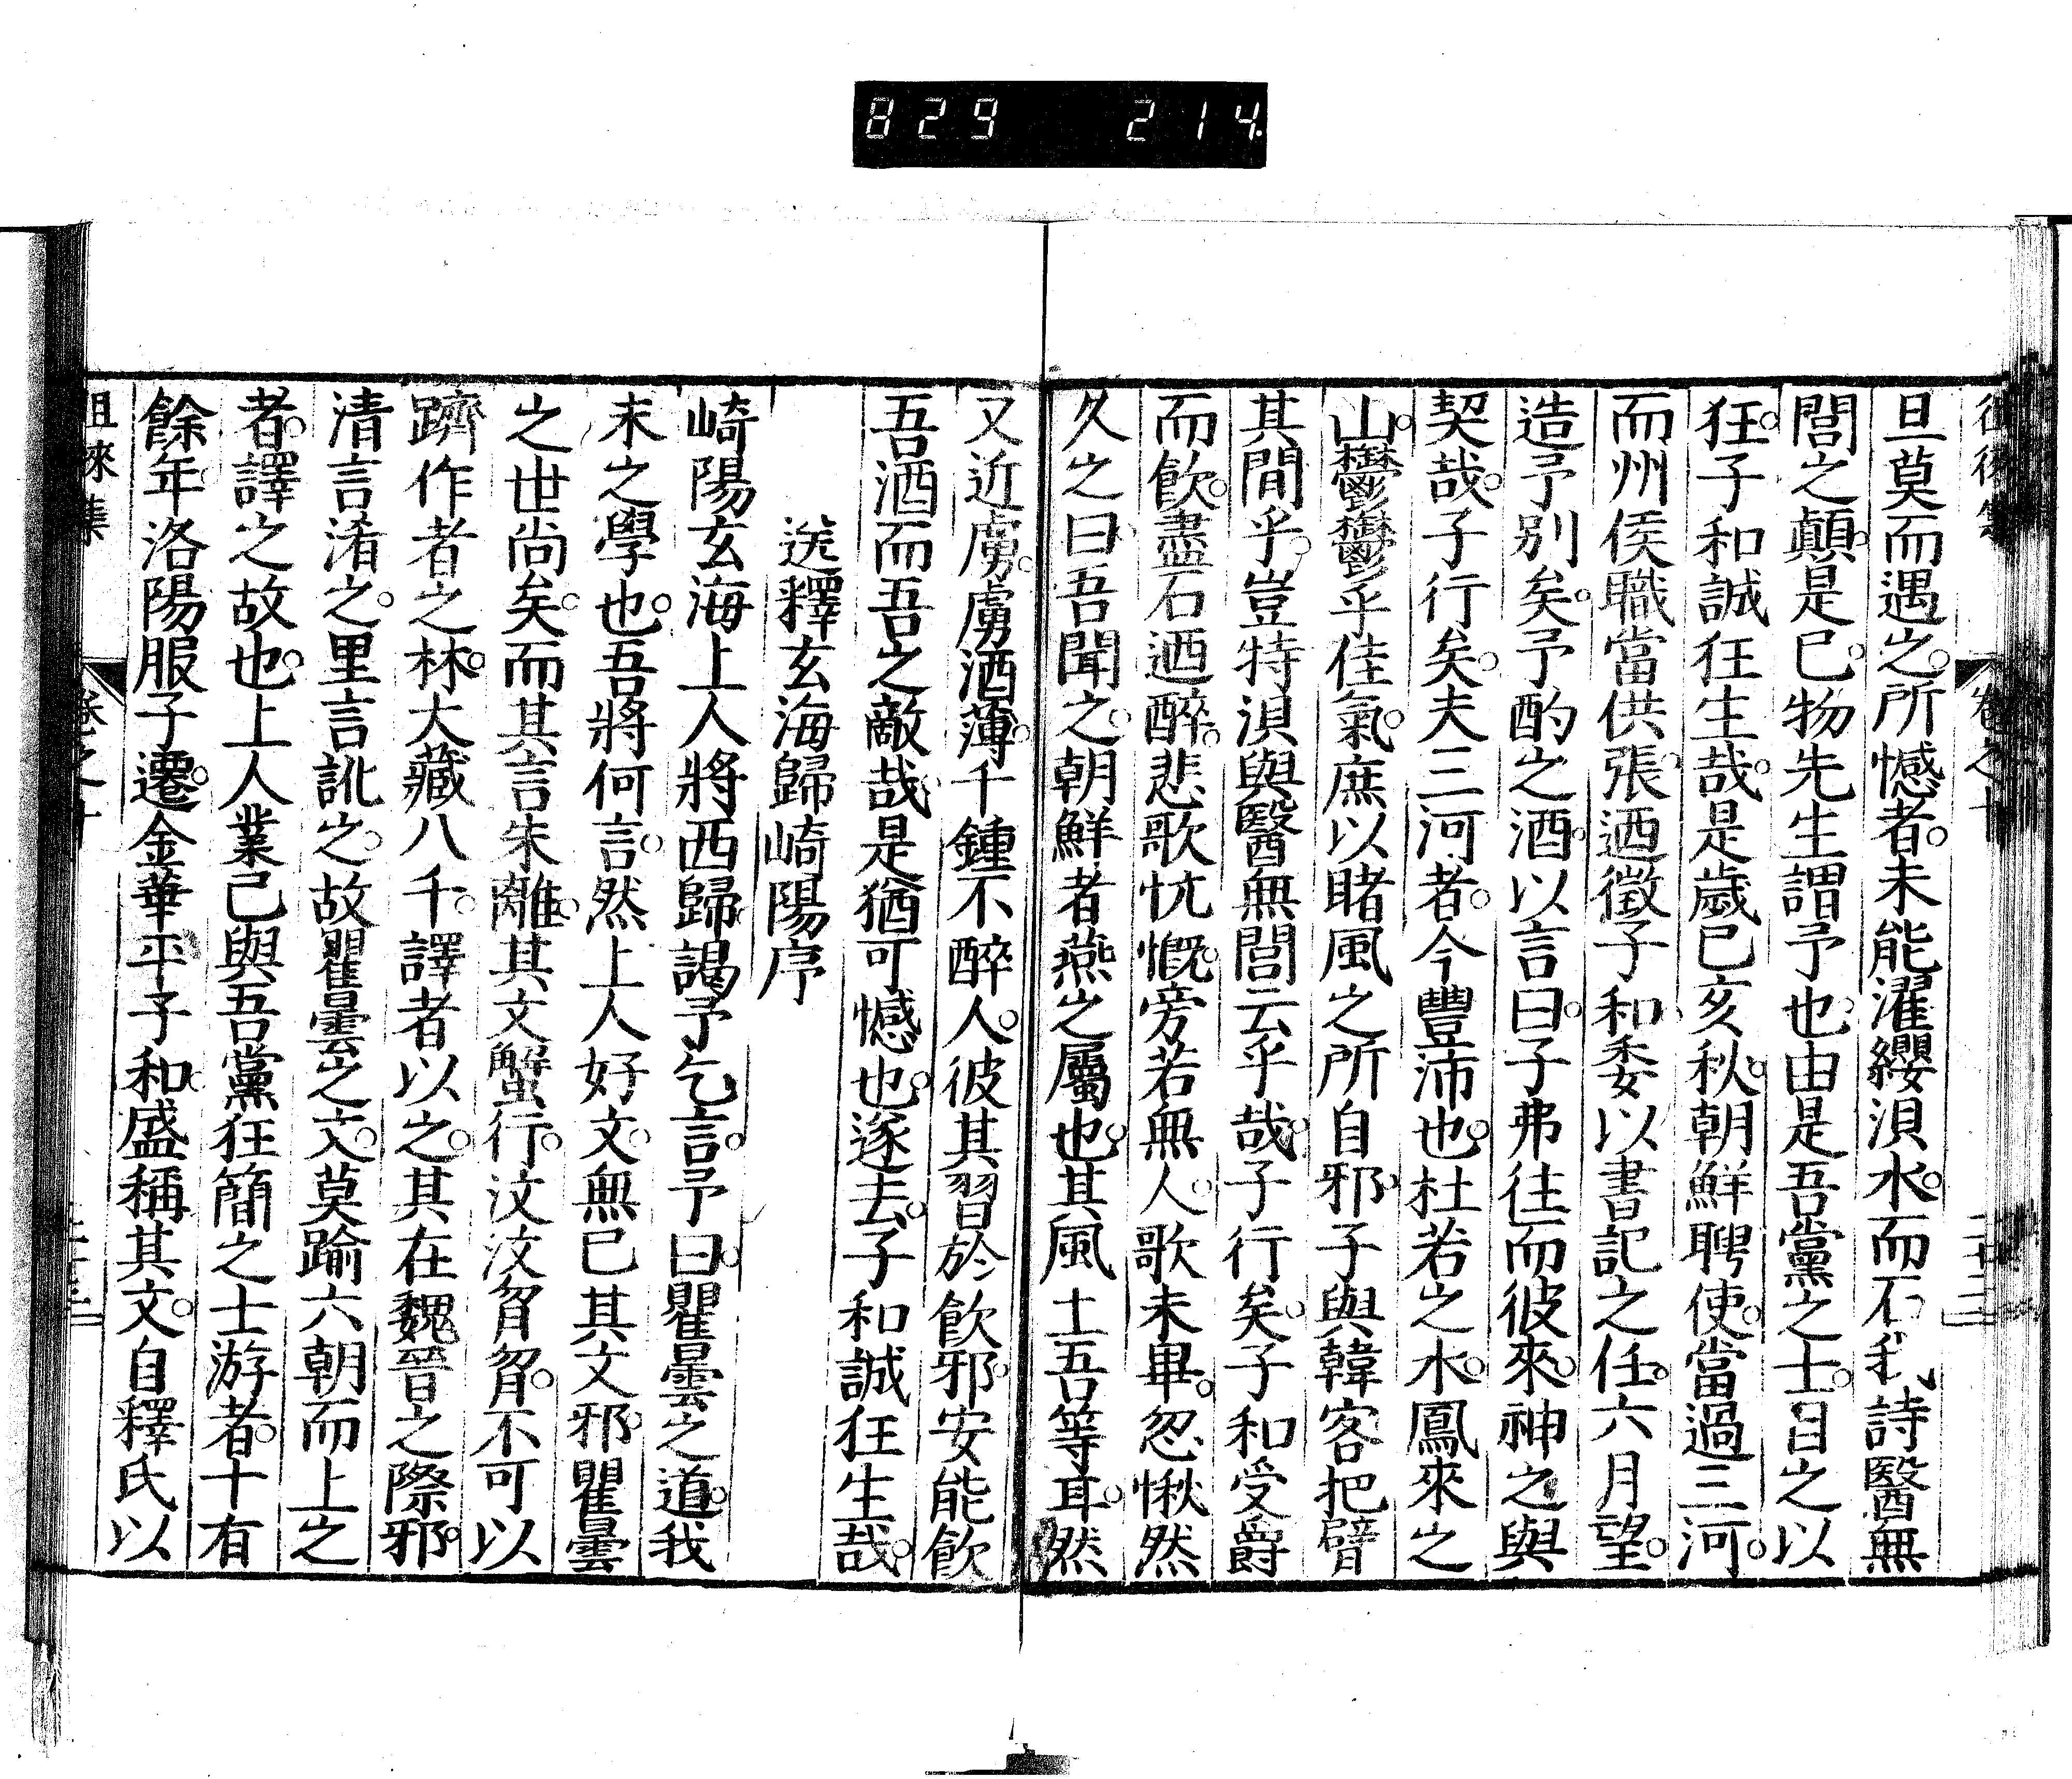 829 214.
旦莫而遇之。所憾者。未能濯纓浿水。而石我詩醫無
閭之顛。是已。物先生謂予也。由是吾黨之士。目之以
狂。子和誠狂生哉。是歲已亥秋。朝鮮聘使。當過三河。
而州侯職當供張。迺徵子和。委以書記之任。六月望。
造予別矣。予酌之酒。以言曰。子弗往而彼來。神之與
契哉。子行矣。夫三河者。今豐沛也。杜若之水。鳳來之
山。鬱鬱乎佳氣。庶以睹風之所自邪。子與韓客把臂
其間乎。豈特浿與醫無閭云乎哉。子行矣。子和受爵
而飮。盡石迺醉。悲歌忼慨。旁若無人。歌未畢。忽愀然
久之曰。吾聞之。朝鮮者燕之屬也。其風土吾等耳。然
又近虜。虜酒薄。千鍾不醉人。彼其習於飮邪。安能飮
吾酒而吾之敵哉。是猶可憾也。遂去。子和誠狂生哉。
送釋玄海歸崎陽序
崎陽玄海上人將西歸。謁予乞言。予曰。瞿曇之道。我
末之學也。吾將何言。然上人好文。無已其文邪。瞿曇
之世尚矣。而其言朱離。其文蟹行。汶汶胷胷。不可以
躋作者之林。大藏八千。譯者以之。其在魏晉之際邪。
清言淆之。里言訛之。故瞿曇之文。莫踰六朝而上之
者。譯之故也。上人業已與吾黨狂簡之士游者。十有
餘年。洛陽服子遷。金華平子和。盛稱其文。自釋氏以
徠集
卷之十